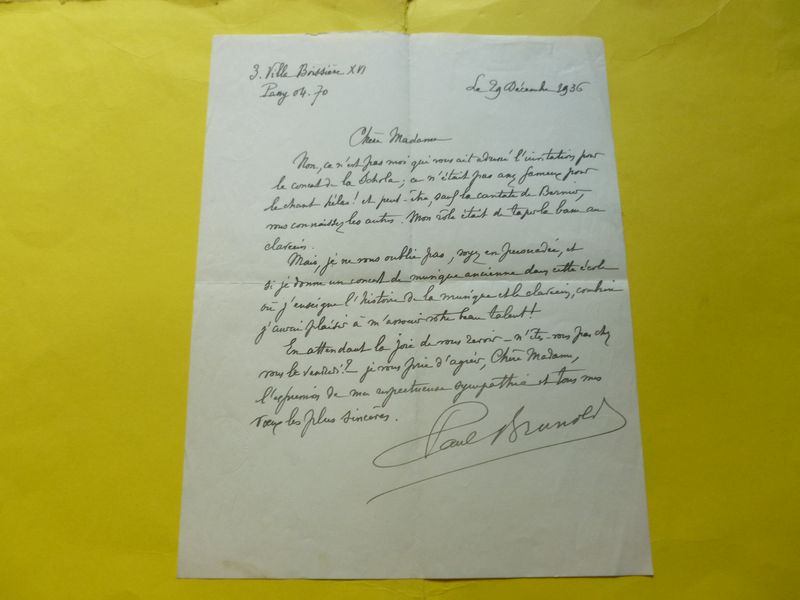 3. Villa Boissière XVI
Passy 04.70
Le 29 Décembre 1936
Chère Madame
Non, ce n'est pas moi qui vous ait adressé l'invitation pour
le concert de la Schola; ce n'était pas assez fameux pour
le chant hélas! et peut-être, sauf la cantate de Bernier,
vous connaissez les autres. Mon rôle était de taper la basse au
clavecin.
Mais, je ne vous oublie pas, soyez en persuadée, et
si je donne un concert de musique ancienne dans cette école
où j'enseigne l'histoire de la musique et le clavecin, combien
j'aurai plaisir à m'assurer votre beau talent!
En attendant la joie de vous revoir - n'êtes-vous pas chez
vous le vendredi? je vous prie d'agréer, Chère Madame,
l'expression de ma respectueuse sympathie et tous mes
vœux les plus sincères.
Paul Brunold